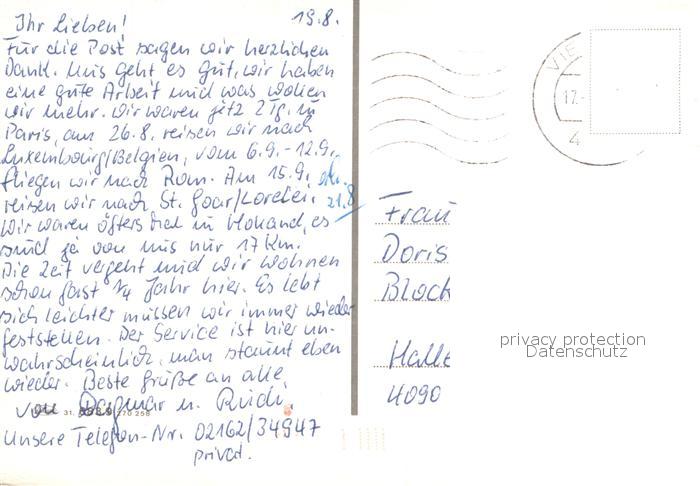 Ihr Lieben! 19.8.
Für die Post sagen wir herzlichen
Dank. Uns geht es gut, wir haben
eine gute Arbeit und was wollen
wir mehr. Wir waren jetz 2 Tg. in
Paris, am 26.8. reisen wir nach
Luxembourg/Belgien, vom 6.9. - 12.9.
fliegen wir nach Rom. Am 15.9.
reisen wir nach St. Goar/Loreley. 21.8
Wir waren öfters mal in Holland, es
sind ja von uns nur 17 Km.
Die Zeit vergeht und wir wohnen
schon fast 1/4 Jahr hier. Es lebt
sich leichter müssen wir immer wieder
feststellen. Der Service ist hier un-
wahrscheinlich, man staunt eben
wieder. Beste Grüße an alle,
von Dagmar u. Rudi.
Unsere Telefon-Nr. 02162/34947
privat.
VIE
17.-
4
Frau
Doris
Block
Halle
4090
privacy protection
Datenschutz